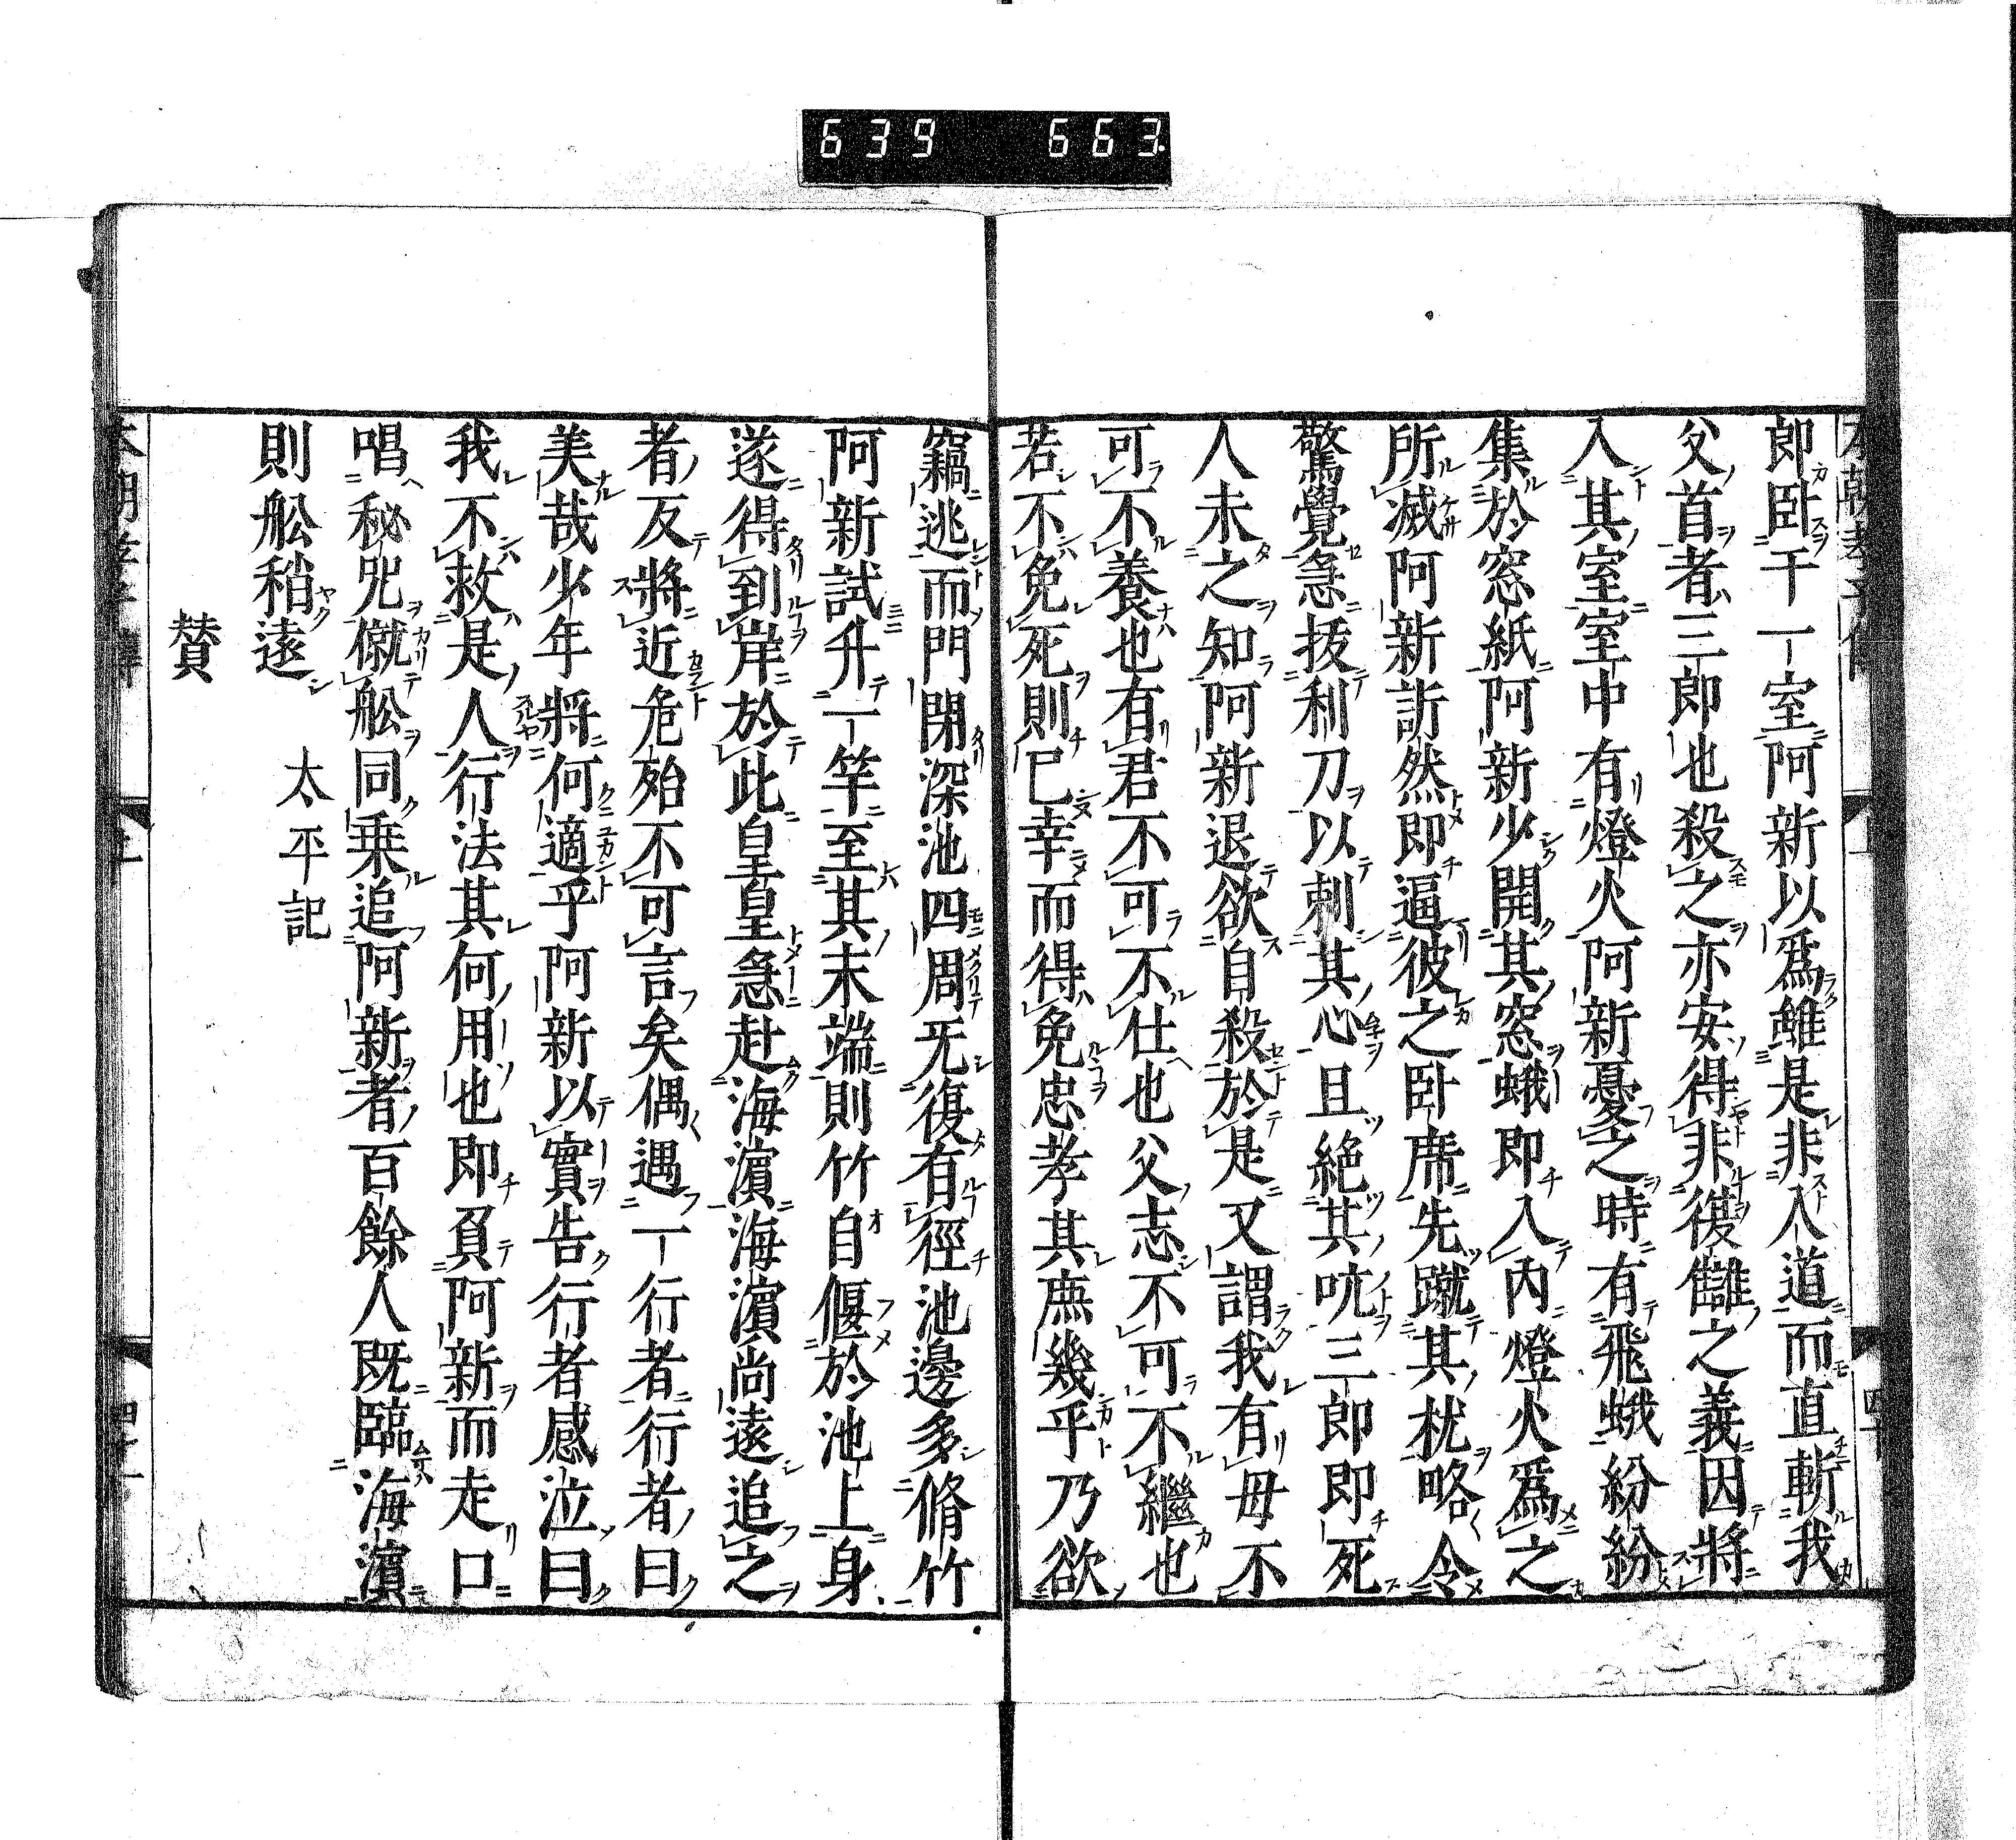 639 663
郎臥于一室阿新以爲雖是非入道而直斬我
父首者三郎也殺之亦安得非復讎之義因將
入其室室中有燈火阿新憂之時有飛蛾紛紛
集於窓紙阿新少開其窓蛾即入内燈火爲之
所滅阿新訢然即逼彼之臥席先蹴其枕略令
驚覺急拔利刀以刺其心且絶其吭三郎即死
人未之知阿新退欲自殺於是又謂我有母不
可不養也有君不可不仕也父志不可不繼也
若不免死則已幸而得免忠孝其庶幾乎乃欲
竊逃而門閉深池四周旡復有徑池邊多脩竹
阿新試升一竿至其末端則竹自偃於池上身
遂得到岸於此皇皇急赴海濵海濵尚遠追之
者反將近危殆不可言矣偶遇一行者行者曰
美哉少年將何適乎阿新以實告行者感泣曰
我不救是人行法其何用也即負阿新而走口
唱秘咒僦舩同乗追阿新者百餘人既臨海濵
則舩稍遠 太平記
賛